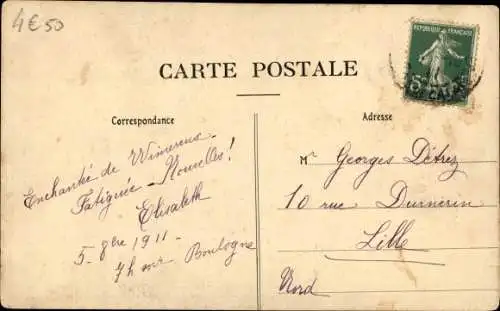 4€50
REPUBLIQUE FRANÇAISE
CARTE POSTALE
Correspondance
Enchantée de Wimereux
Fatiguée - Nouvelles!
Elisabeth
5 - 1911 -
7h Boulogne
Adresse
Mr Georges Détrez
10 rue
Lille
Nord